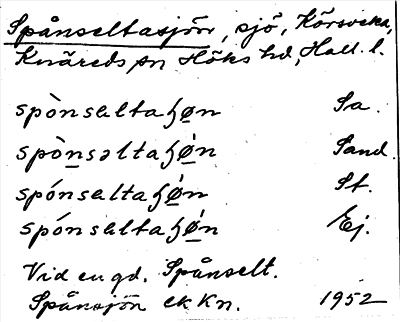 Spånseltasjön, sjö, Körsveka,
Knäreds sn Höks hd, Hall. l.
spò̀nsəltaɧø̀n Sa.
spò̀nsəltaɧø̀n Sand.
spónsəltaɧø̀n St.
spónsəltaɧø̀n Ej.
Vid en gd. Spånselt.
Spånsjön ek Kn. 1952